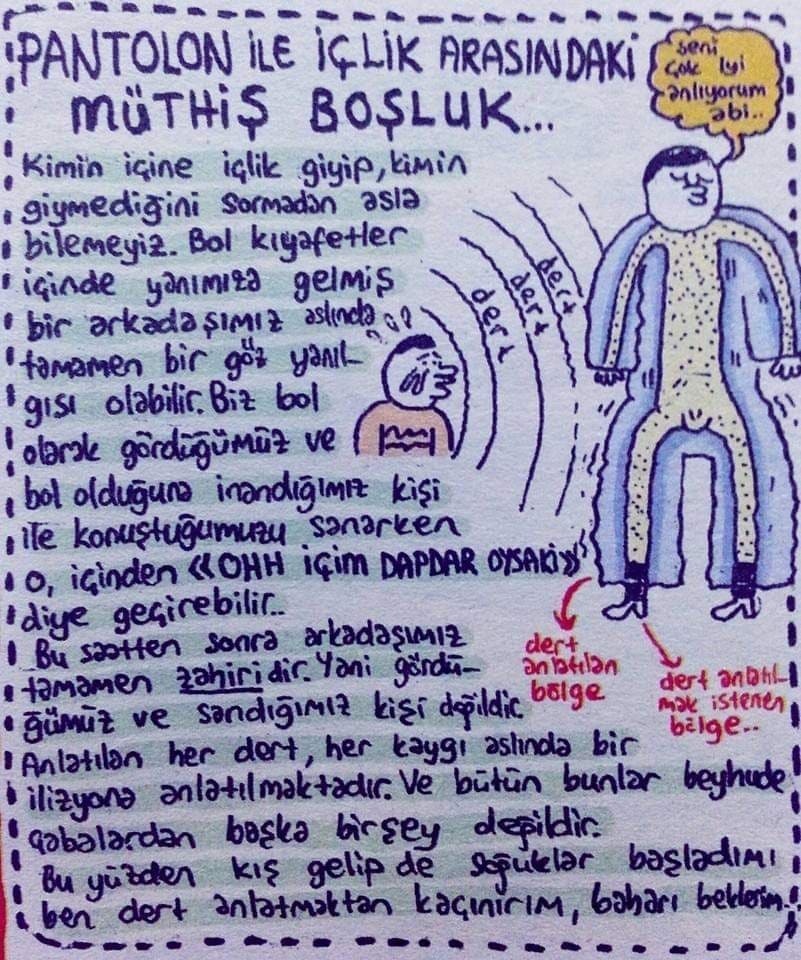 PANTOLON İLE İÇLİK ARASINDAKİ
MÜTHİŞ BOŞLUK...
seni
çok iyi
anlıyorum
abi..
Kimin içine içlik giyip, kimin
giymediğini sormadan asla
bilemeyiz. Bol kıyafetler
içinde yanımıza gelmiş
bir arkadaşımız aslında
tamamen bir göz yanıl-
gısı olabilir. Biz bol
olarak gördüğümüz ve
bol olduğuna inandığımız kişi
ile konuştuğumuzu sanarken
o, içinden «OHH İÇİM DAPDAR OYSAKİ»
diye geçirebilir..
Bu saatten sonra arkadaşımız
tamamen zahiridir. Yani gördü-
ğümüz ve sandığımız kişi değildir.
Anlatılan her dert, her kaygı aslında bir
ilizyona anlatılmaktadır. Ve bütün bunlar beyhude
çabalardan başka birşey değildir.
Bu yüzden kış gelip de soğuklar başladımı
ben dert anlatmaktan kaçınırım, baharı beklerim..
dert
dert
dert
dert
anlatılan
bölge
dert anlatıl-
mak istenen
bölge..